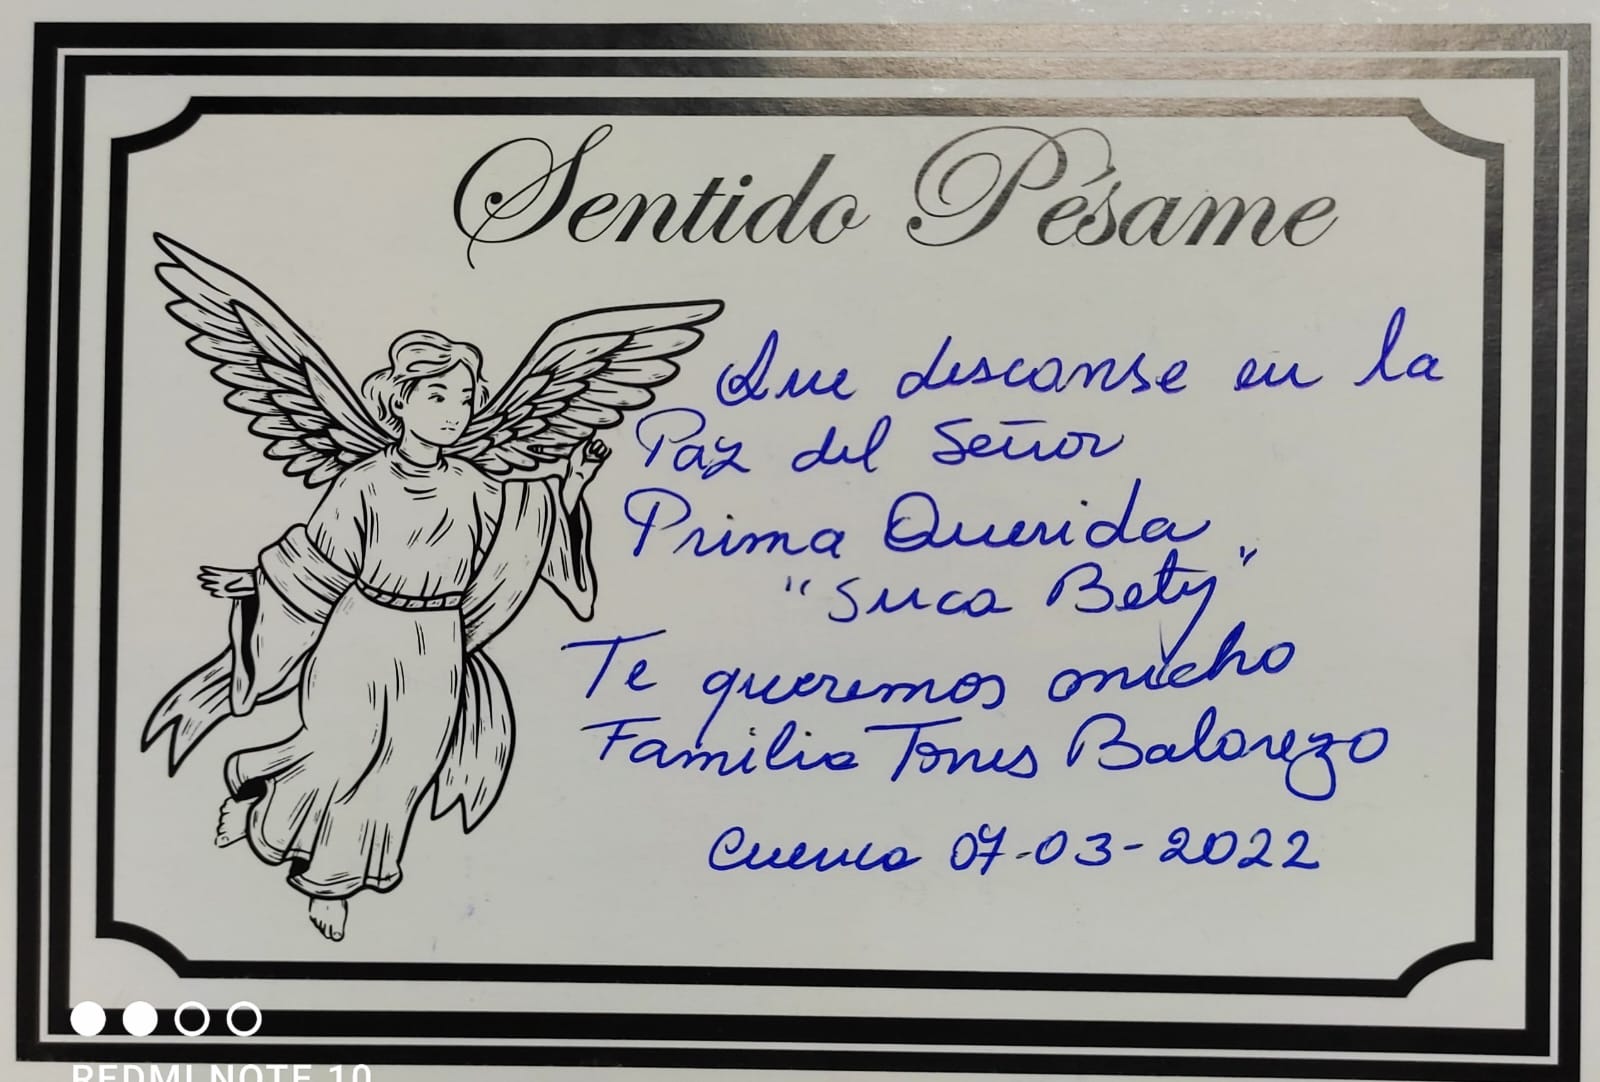 Sentido Pésame
Que descanse en la
Paz del Señor
Prima Querida
"Suca Bety"
Te queremos mucho
Familia Torres Balarezo
Cuenca 07-03-2022
REDMI NOTE 10